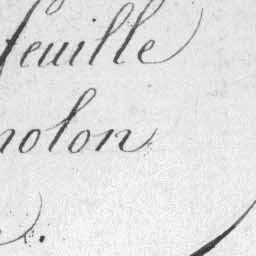 feuille
nolon
.